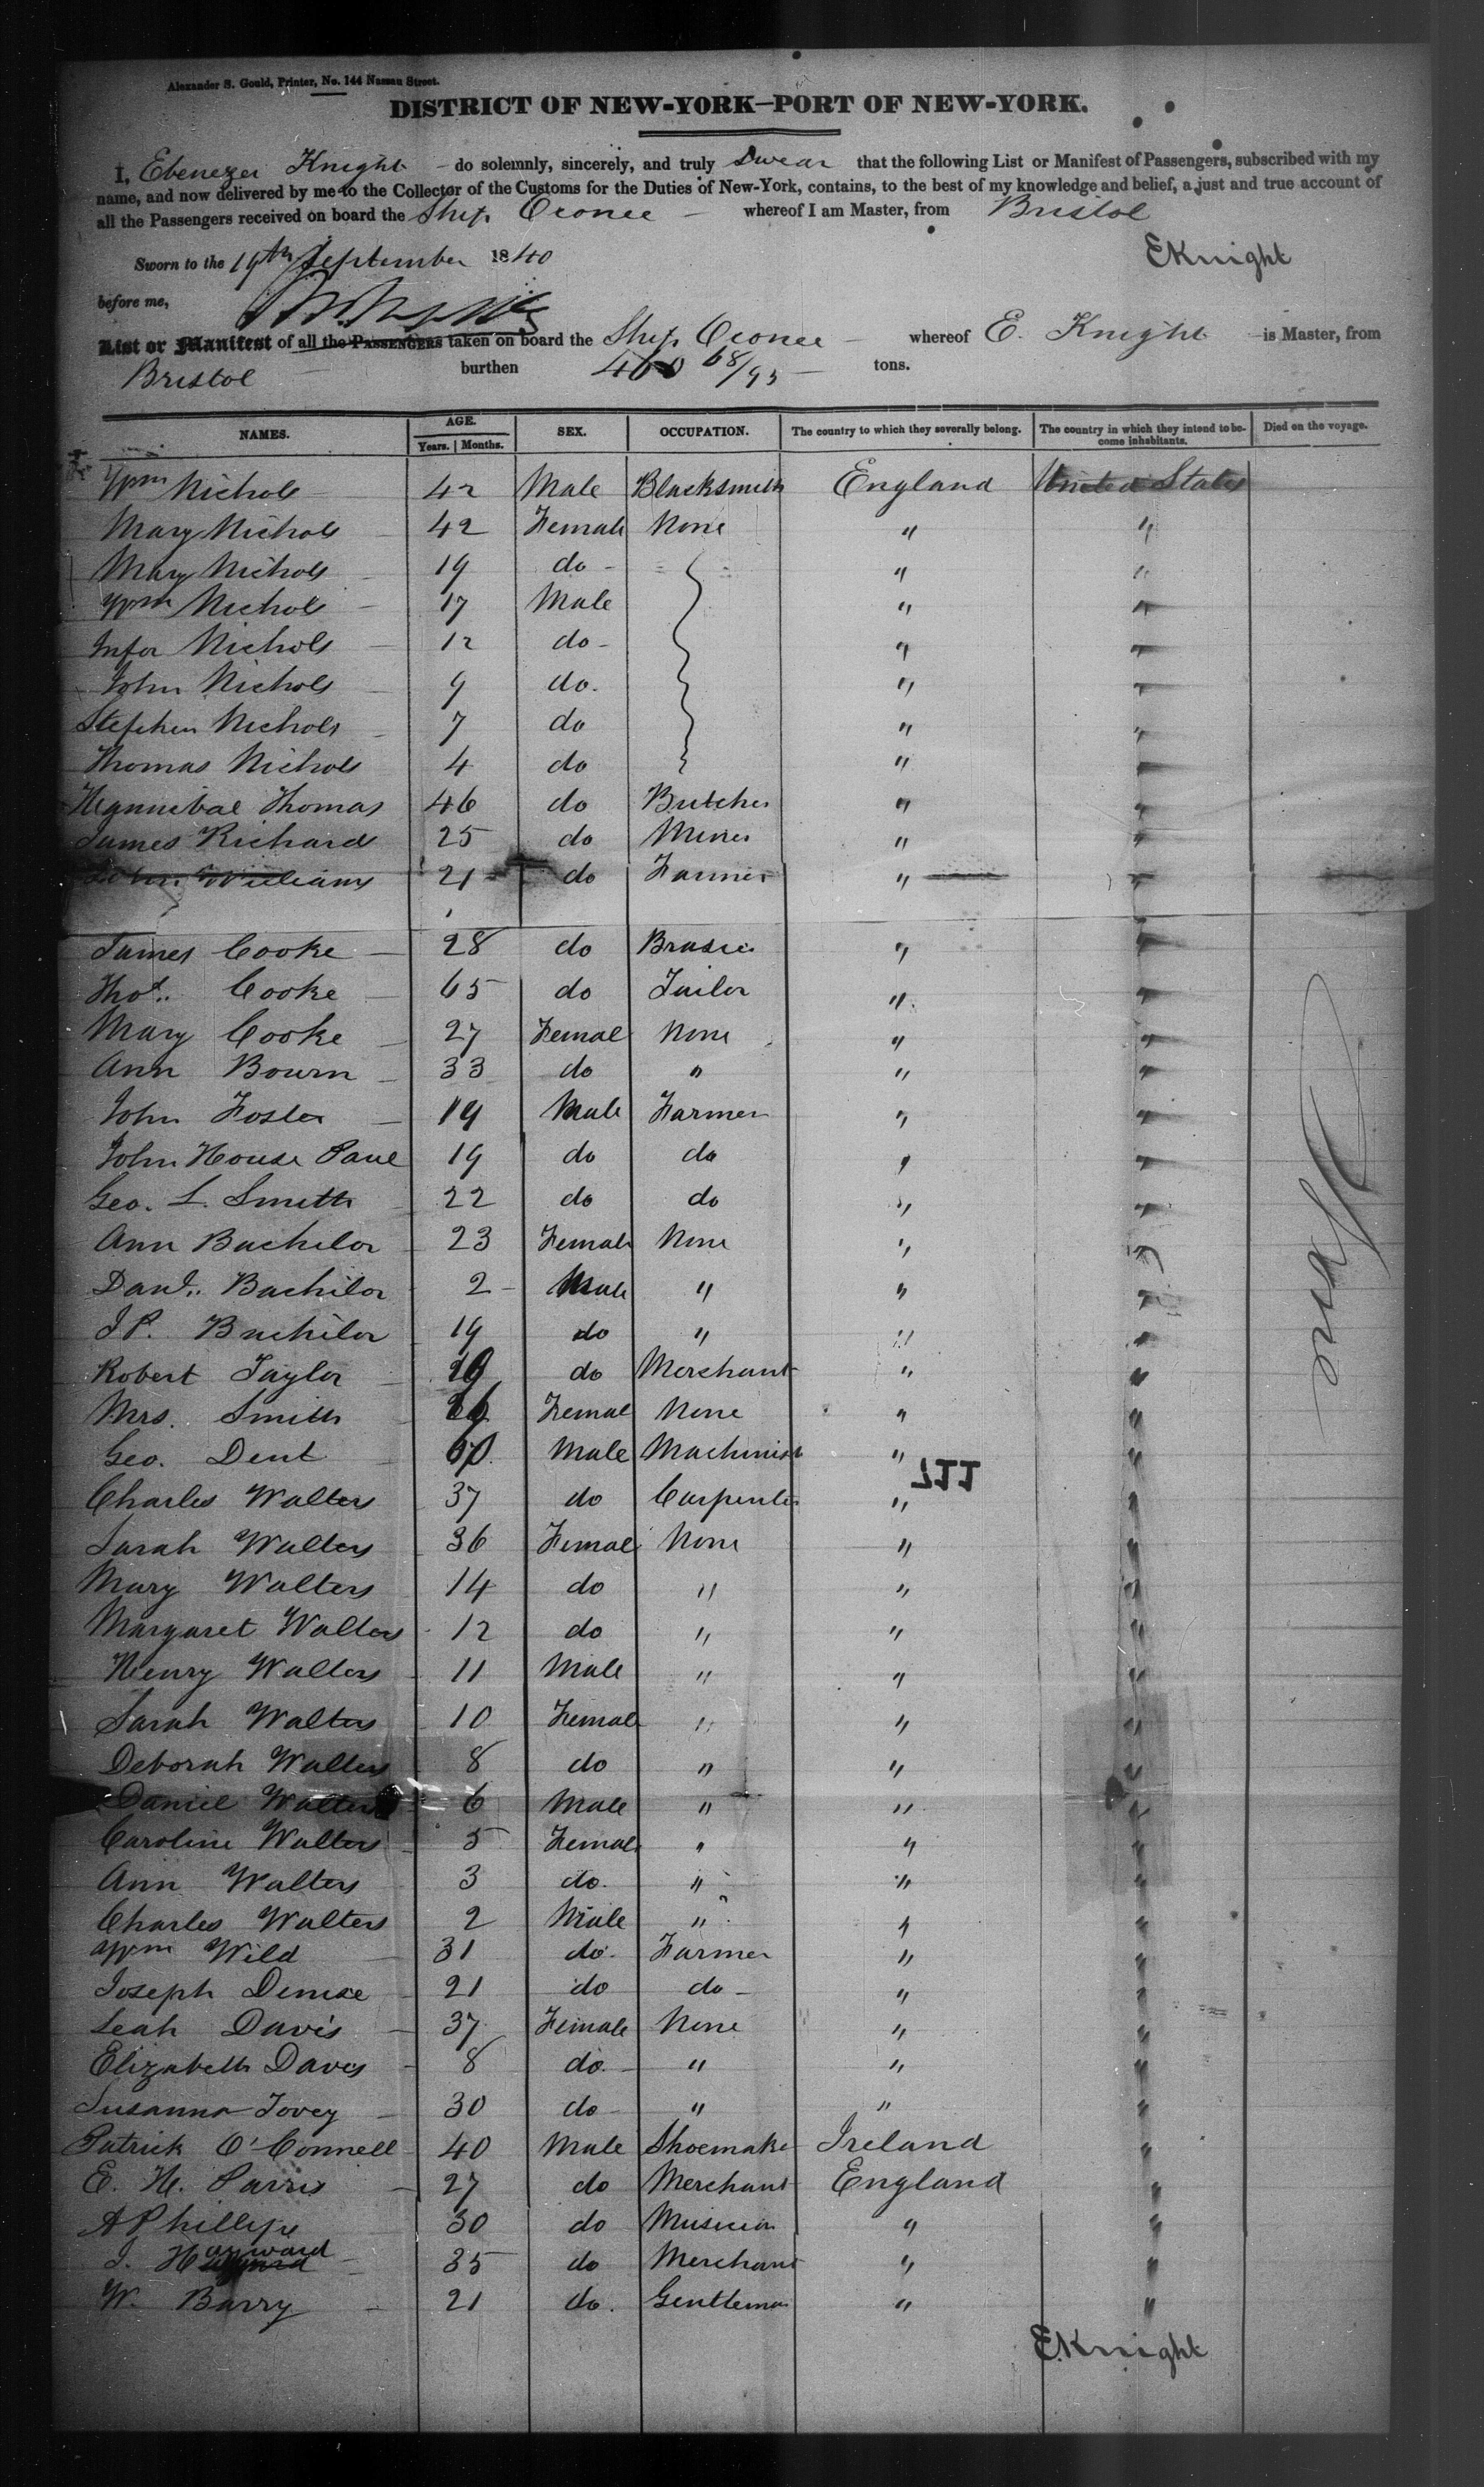 Alexander S. Gould, Printer, No. 144 Nassau Street.
DISTRICT OF NEW-YORK—PORT OF NEW-YORK.
I, Ebenezer Knight do solemnly, sincerely, and truly Swear that the following List or Manifest of Passengers, subscribed with my
name, and now delivered by me to the Collector of the Customs for the Duties of New-York, contains, to the best of my knowledge and belief, a just and true account of
all the Passengers received on board the Ship Oconee whereof I am Master, from Bristol
Sworn to the 19th September 1840 EKnight
before me,
List or Manifest of all the PASSENGERS taken on board the Ship Oconee whereof E. Knight is Master, from
Bristol burthen 460 68/95 tons.
NAMES. AGE. Years. | Months. SEX. OCCUPATION. The country to which they severally belong. The country in which they intend to become inhabitants. Died on the voyage.
Wm Nichols 42 Male Blacksmith England United States
Mary Nichols 42 Female None " "
Mary Nichols 19 do " "
Wm Nichols 17 Male " "
Nichols 12 do " "
John Nichols 9 do. " "
Stephen Nichols 7 do " "
Thomas Nichols 4 do " "
Hannibal Thomas 46 do Butcher " "
James Richards 25 do Miner " "
John Williams 21 do Farmer " "
James Cooke 28 do Brasier " "
Thos. Cooke 65 do Tailor " "
Mary Cooke 27 Femal None " "
Ann Bourn 33 do " " "
John Foster 19 Male Farmer " "
John House Paul 19 do do " "
Geo. L. Smith 22 do do " "
Ann Bachelor 23 Female None " "
Danl. Bachilor 2 Male " " "
J P. Bachilor 19 do " " "
Robert Taylor do Merchant " "
Mrs. Smith Femal None " "
Geo. Dent Male Machinist " "
711
Charles Walters 37 do Carpenter " "
Sarah Walters 36 Femal None " "
Mary Walters 14 do " " "
Margaret Walters 12 do " " "
Henry Walters 11 Male " " "
Sarah Walters 10 Female " " "
Deborah Walters 8 do " " "
Daniel Walters 6 Male " " "
Caroline Walters 5 Female " " "
Ann Walters 3 do. " " "
Charles Walters 2 Male " " "
Wm Wild 31 do. Farmer " "
Joseph Denise 21 do do " "
Leah Davis 37 Female None " "
Elizabeth Daves 8 do. " " "
Susanna Tovey 30 do " "
Patrick O'Connell 40 Male Shoemaker Ireland "
E. H. Parris 27 do Merchant England "
A Phillips 30 do Musician " "
J. Hayward 35 do Merchant " "
W. Barry 21 do. Gentleman " "
EKnight